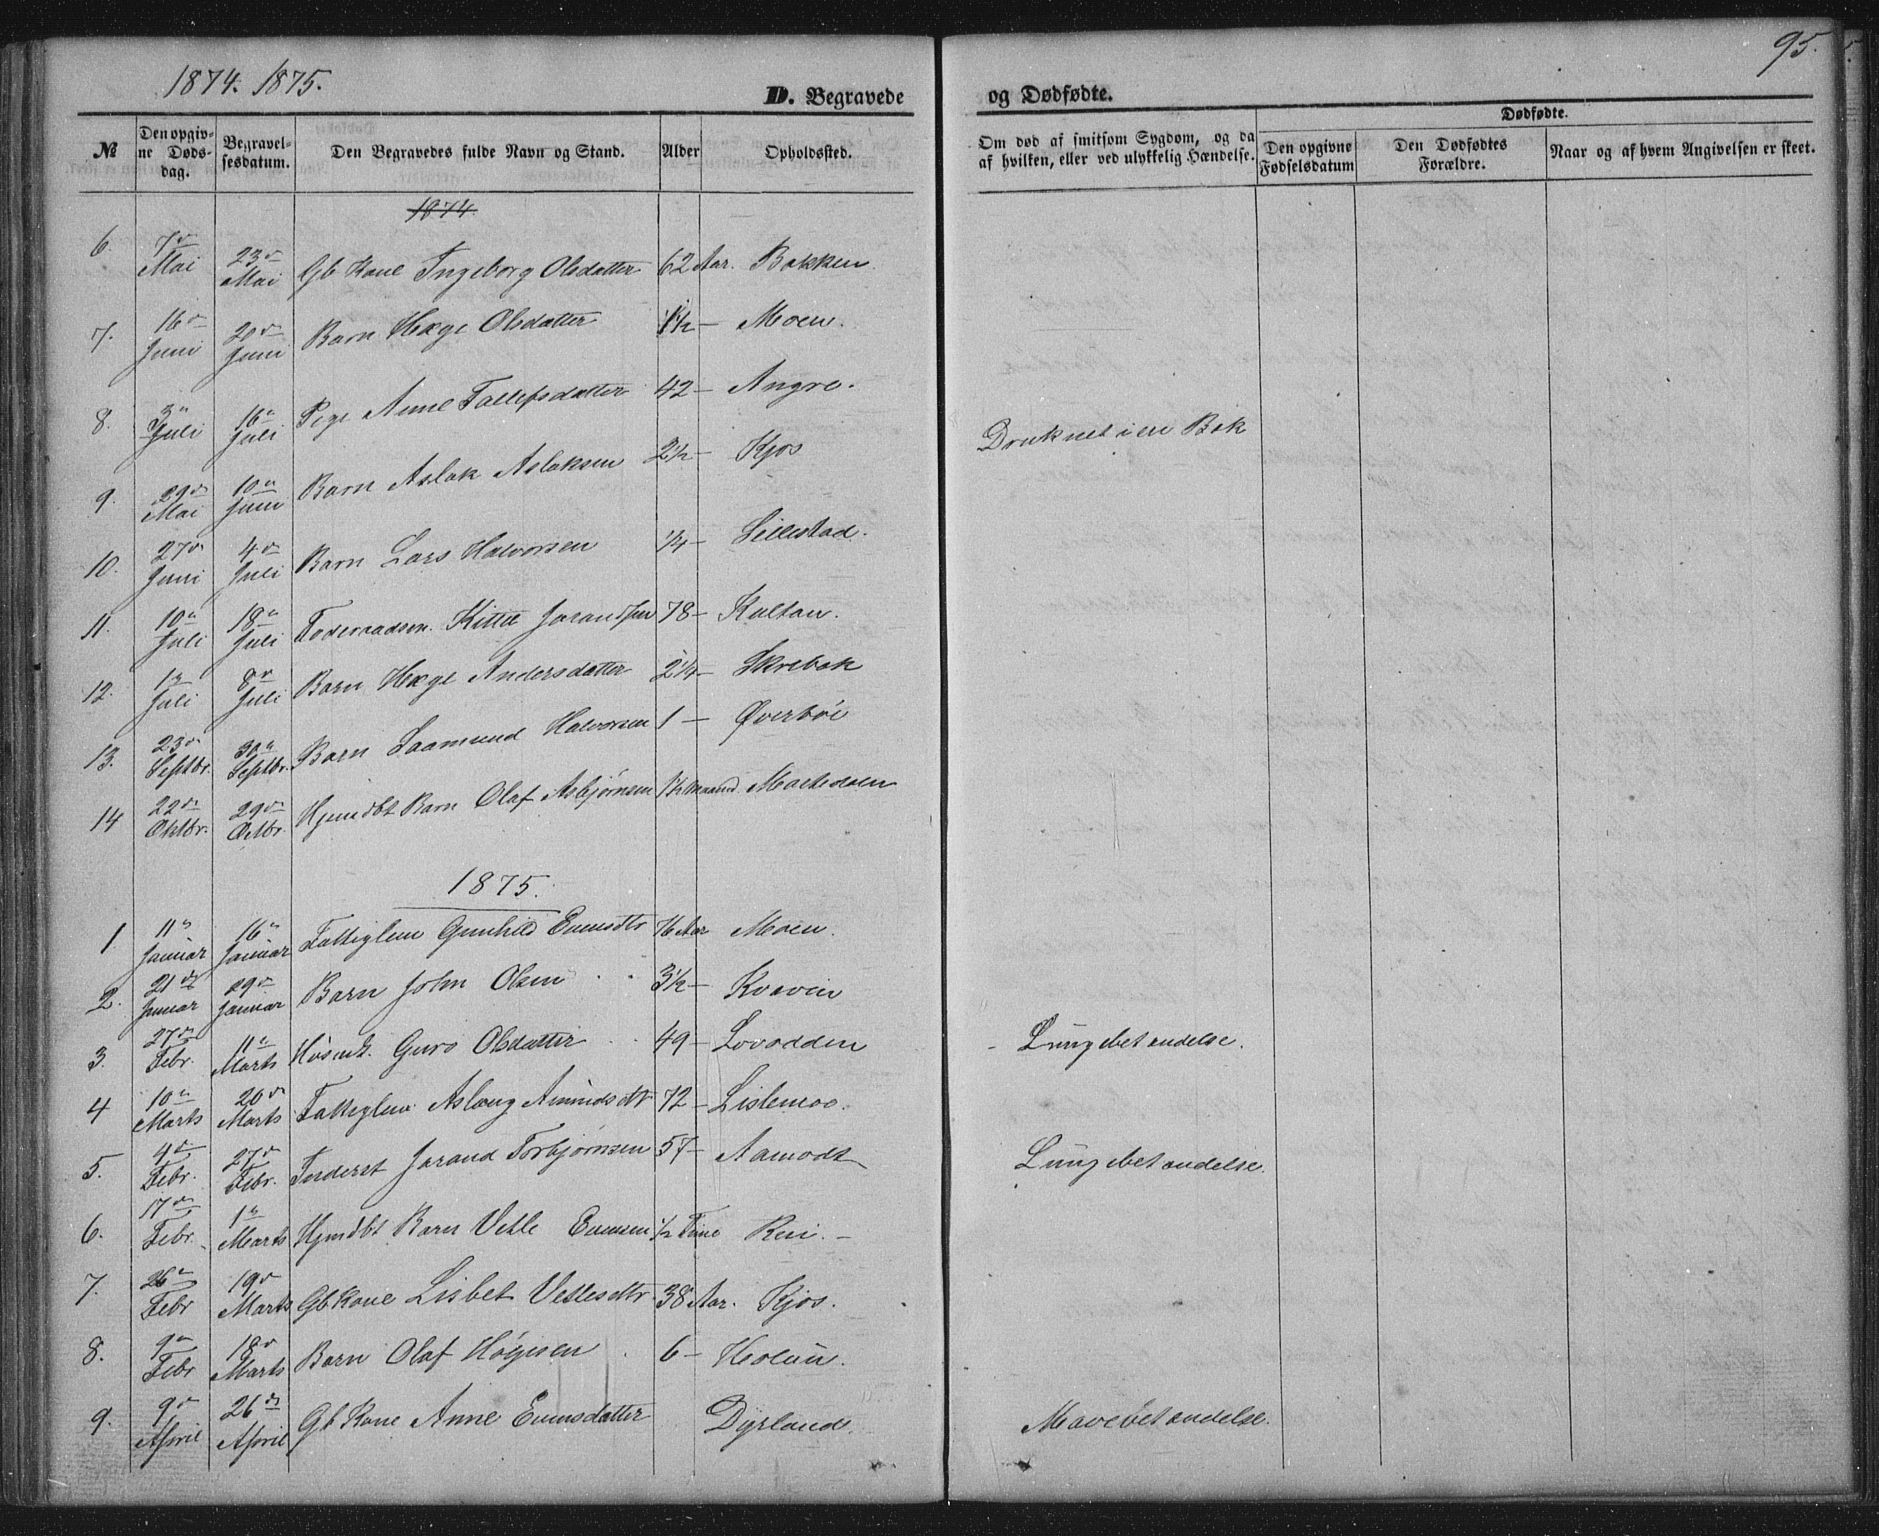 1874. 1875.
D. Begravede
og Dødfødte.
95.
№
Den opgiv-
ne Døds-
dag.
Begravel-
sesdatum.
Den Begravedes fulde Navn og Stand.
Alder
Opholdssted.
Om død af smitsom Sygdom, og da
af hvilken, eller ved ulykkelig Hændelse.
Dødfødte.
Den opgivne
Fødselsdatum
Den Dødfødtes
Forældre.
Naar og af hvem Angivelsen er skeet.
1874.
6. 7de Mai 23de Mai Gb Kone Ingeborg Olsdatter 62 Aar. Bakken.
7. 16de Juni 20de Juni Barn Hæge Olsdatter 1½ — Moen.
8. 3die Juli 16de Juli Pige Anne Tallefsdatter 42 — Angre.
Druknet i en Bæk
9. 29de Mai 10de Juni Barn Aslak Aslaksen 2½ — Kjos
10. 27de Juni 4de Juli Barn Lars Halvorsen ¼ — Lillestad.
11. 10de Juli 18de Juli Foderaadsm. Kittil Jarandsen 78 — Kaltan.
12. 1ste Juli 8de Juli Barn Hæge Andersdatter 2¼ — Skrebæk
13. 23de Septbr. 30te Septbr. Barn Saamund Halvorsen 1 — Øverböe
14 22de Oktbr. 29de Octbr. Hjemdbt Barn Olaf Asbjørnsen 1½ Maaned.
1875.
1. 11te Januar 16de Januar Fattiglem Gunhild Evensdtr 76 Aar Moen.
2. 21de Januar 29de Januar Barn John Olsen 3½ — Kvavin
3. 27de Febr. 11te Marts Huusm. K. Guro Olsdatter 49 — Lovodden
Lungebetændelse.
4 10de Marts 20de Marts Fattiglem Aslaug Amundsdtr 72 — Lislemoe.
5. 4de Febr. 27de Febr. Foderet Jarand Torbjørnsen 57 — Aamodt
Lungebetændelse.
6. 17de Febr. 1ste Marts Hjmdbt Barn Vetle Evensen ½ Time Rui. —
7. 26de Febr 19de Marts Gb Kone Lisbet Vetlesdtr. 38 Aar. Kjos.
8. 9de Febr 18de Marts Barn Olaf Høljesen 6 —
9. 9de April 26de April Gb Kone Anne Evensdatter Dyrland.
Mavebetændelse.